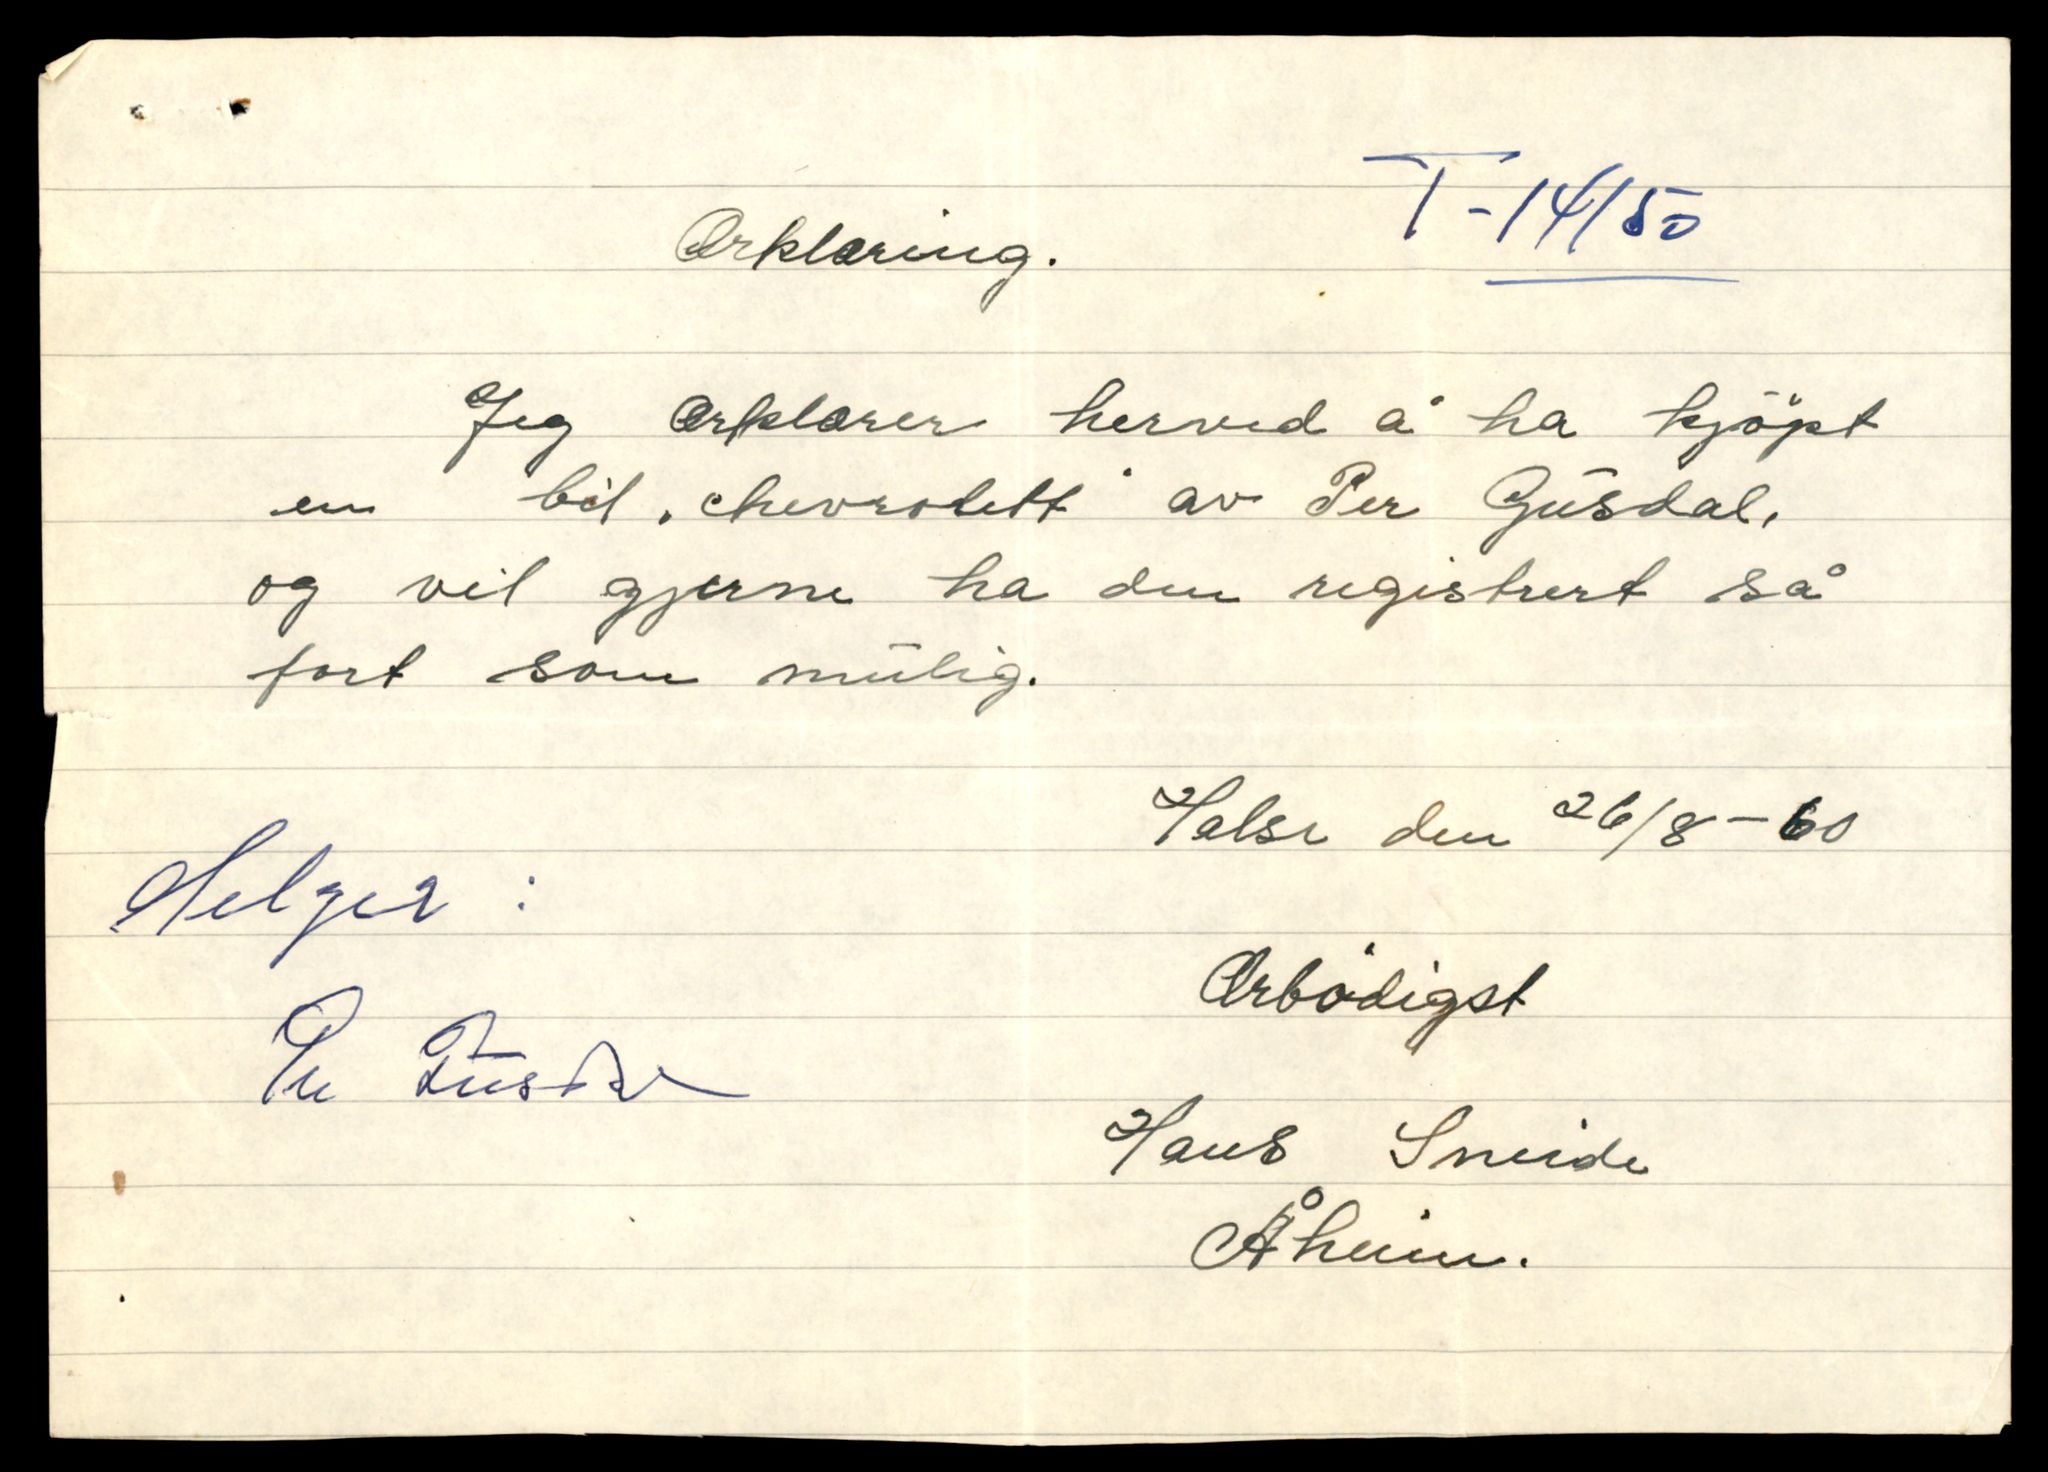 T-14150
Ærklæring.
Jeg ærklærer herved å ha kjöpt
en bil "chevrolett" av Per Gusdal,
og vil gjerne ha den registrert så
fort som mulig.
Halse den 26/8-60
Selger:
Ærbödigst
Per Gusdal
Hans Sneide
Åheim.